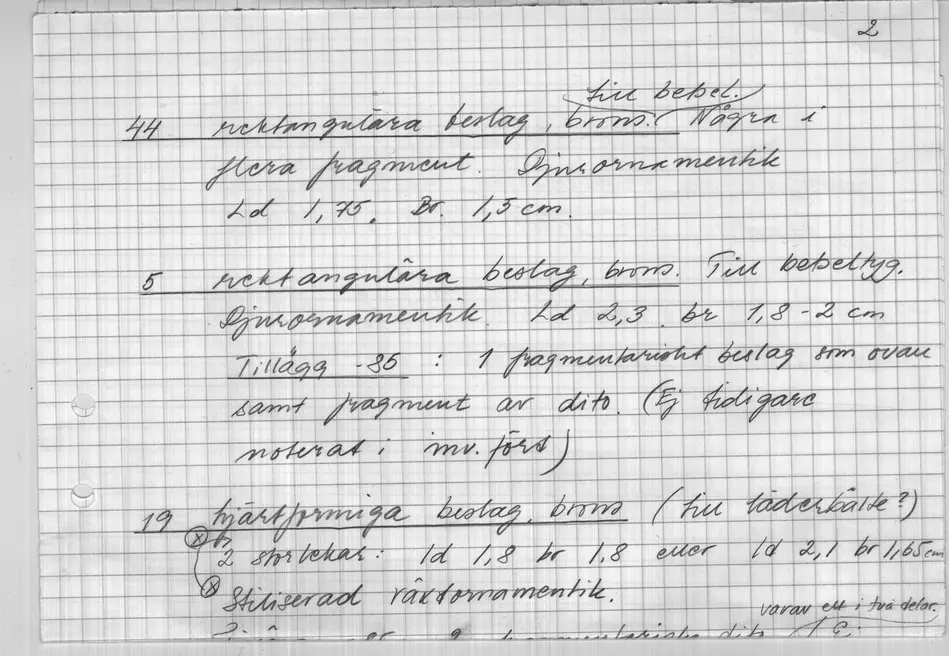 2
till betsel.
44 rektangulära beslag, brons. Några i
flera fragment. Djurornamentik
Ld 1,75. Br. 1,5 cm.
5 rektangulära beslag, brons. Till betseltyg.
Djurornamentik. Ld 2,3. br 1,8-2 cm
Tillägg -85: 1 fragmentariskt beslag som ovan
samt fragment av dito. (Ej tidigare
noterat i inv. först)
19 hjärtformiga beslag, brons (till läderbälte?)
2 storlekar: ld 1,8 br 1,8 eller ld 2,1 br 1,65 cm
Stiliserad växtornamentik.
varav ett i två delar.